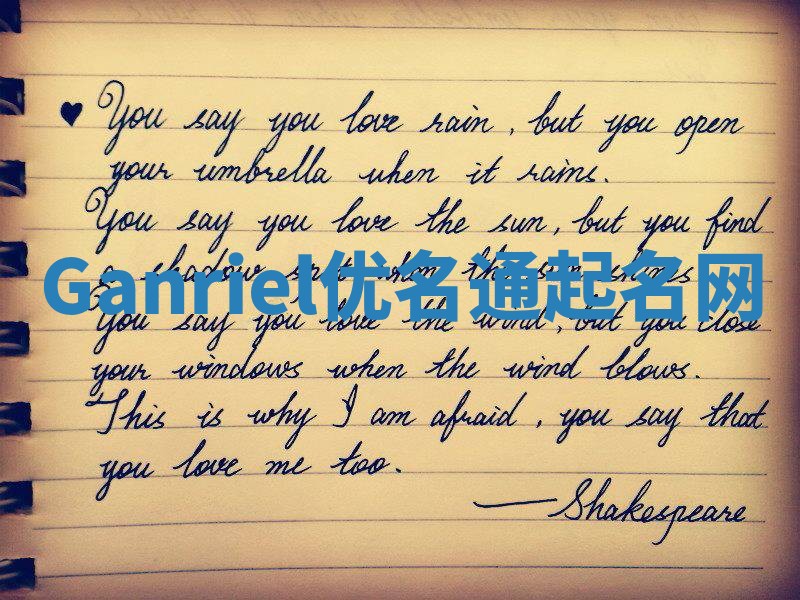 ♥ You say you love rain, but you open
your umbrella when it rains.
You say you love the sun, but you find
a shadow spot when the sun shines
Ganriel优名通起名网
You say you love the wind, but you close
your windows when the wind blows.
This is why I am afraid, you say that
you love me too.
— Shakespeare